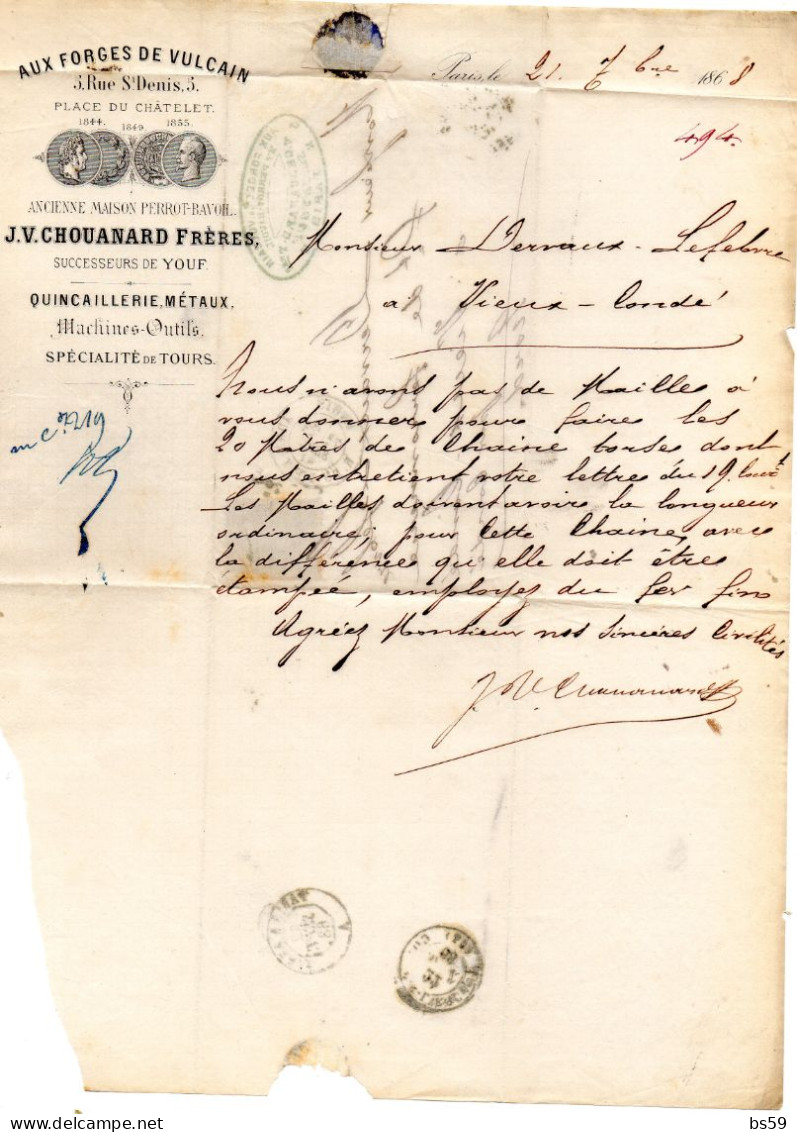 AUX FORGES DE VULCAIN
5, Rue St Denis, 5.
PLACE DU CHÂTELET.
1844. 1849. 1855.
ANCIENNE MAISON PERROT-BAVOIL.
J.V. CHOUANARD FRÈRES,
SUCCESSEURS DE YOUF.
QUINCAILLERIE, MÉTAUX.
Machines-Outils.
SPÉCIALITÉ DE TOURS.
Paris, le 21. 7bre 1868
494.
Monsieur Dervaux-Lefebvre
à Vieux-Condé
Nous n'avons pas de Mailles à
vous donner pour faire les
20 Mètres de Chaine torse dont
nous entretient votre lettre du 19. Cour't
Les Mailles doivent avoire la longueur
ordinaire, pour Cette Chaine, avec
la différence qu'elle doit êtres
étampée, employez du fer fin
Agréez Monsieur nos Sincères Civilités
J. V. Chouanard
bs59
www.delcampe.net